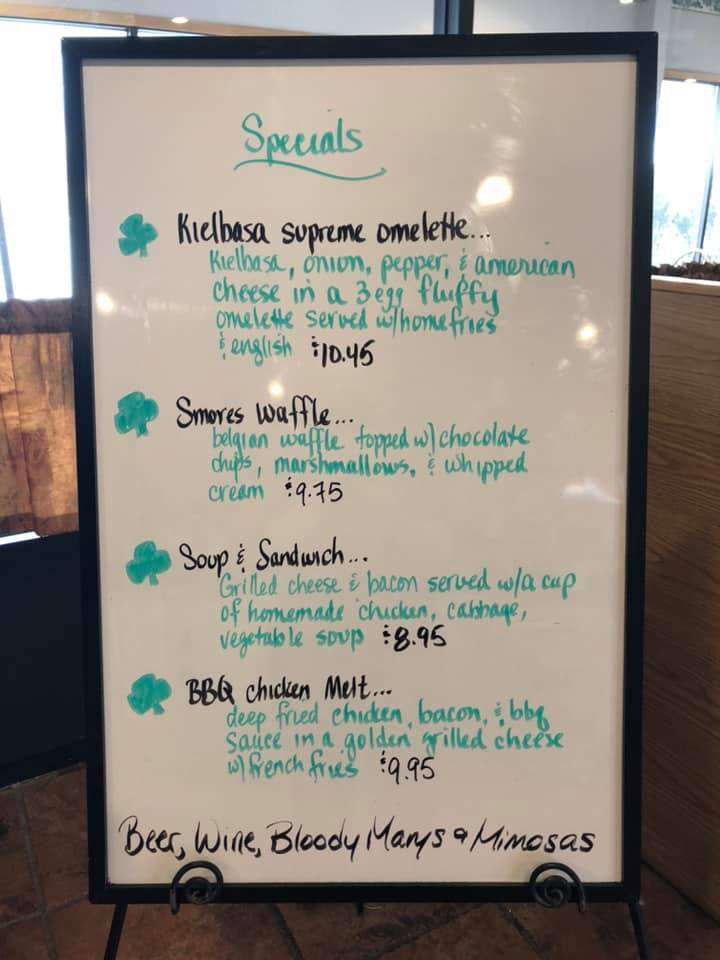 Specials
Kielbasa supreme omelette...
Kielbasa, onion, pepper, & american
cheese in a 3 egg fluffy
omelette served w/homefries
& english $10.45
Smores Waffle...
belgian waffle topped w/ chocolate
chips, marshmallows, & whipped
cream $9.75
Soup & Sandwich...
Grilled cheese & bacon served w/a cup
of homemade chicken, cabbage,
vegetable soup $8.95
BBQ chicken Melt...
deep fried chicken, bacon, & bbq
sauce in a golden grilled cheese
w/ french fries $9.95
Beer, Wine, Bloody Marys & Mimosas